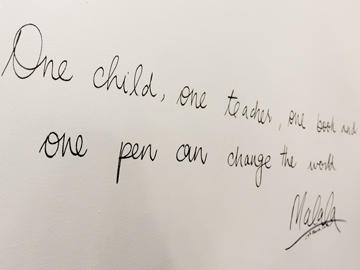 One child, one teacher, one book and
one pen can change the world
Malala